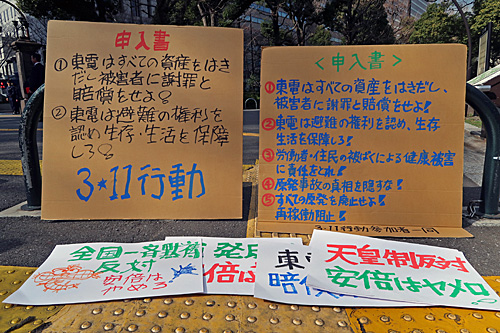 申入書
①東電はすべての資産をはき
だし被害者に謝罪と
賠償をせよ!
②東電は避難の権利を
認め生存・生活を保障
しろ!
3★11行動
<申入書>
①東電はすべての資産をはきだし、
被害者に謝罪と賠償をせよ!
②東電は避難の権利を認め、生存
生活を保障しろ!
③労働者・住民の被ばくによる健康被害
に責任をとれ!
④原発事故の真相を隠すな!
⑤すべての原発を廃止せよ!
再稼働阻止!
3・11行動参加者一同
全国一斉
反対
安倍は
やめろ
発
倍は
東電
賠償
天皇制反対
安倍はヤメロ